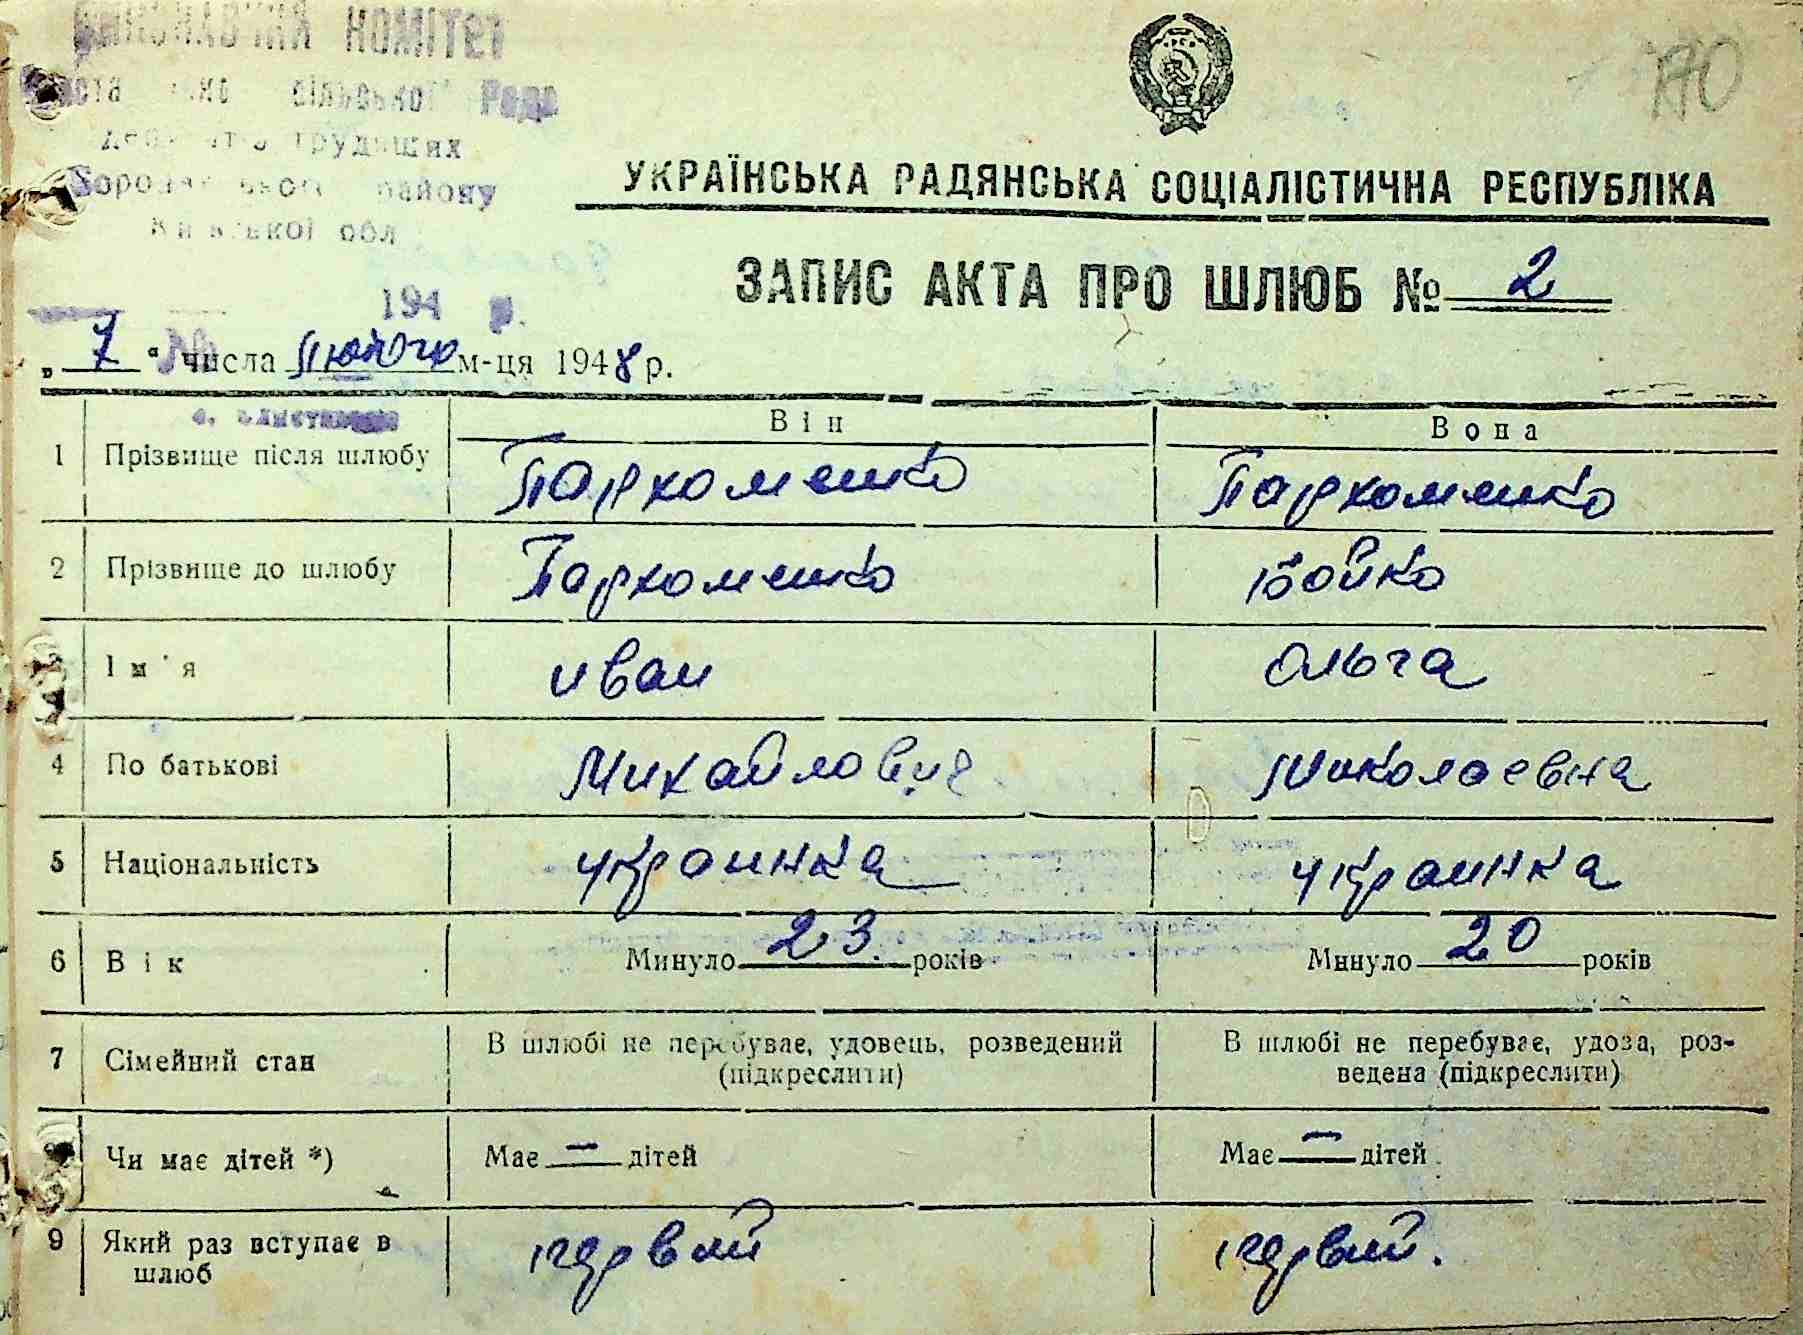 КОМІТЕТ
сільської Ради
трудящих
району
Київської обл
170
УКРАЇНСЬКА РАДЯНСЬКА СОЦІАЛІСТИЧНА РЕСПУБЛІКА
ЗАПИС АКТА ПРО ШЛЮБ № 2
194 р.
„ 7 “ числа Лютого м-ця 1948 р.
Він Вона
1 Прізвище після шлюбу Пархоменко Пархоменко
2 Прізвище до шлюбу Пархоменко Бойко
3 Ім'я иван Ольга
4 По батькові Михайлович Николаевна
5 Національність украинка украинка
6 Вік Минуло 23. років Минуло 20 років
7 Сімейний стан В шлюбі не перебуває, удовець, розведений (підкреслити) В шлюбі не перебуває, удова, роз-
ведена (підкреслити)
8 Чи має дітей *) Має — дітей Має — дітей
9 Який раз вступає в первий первий.
шлюб